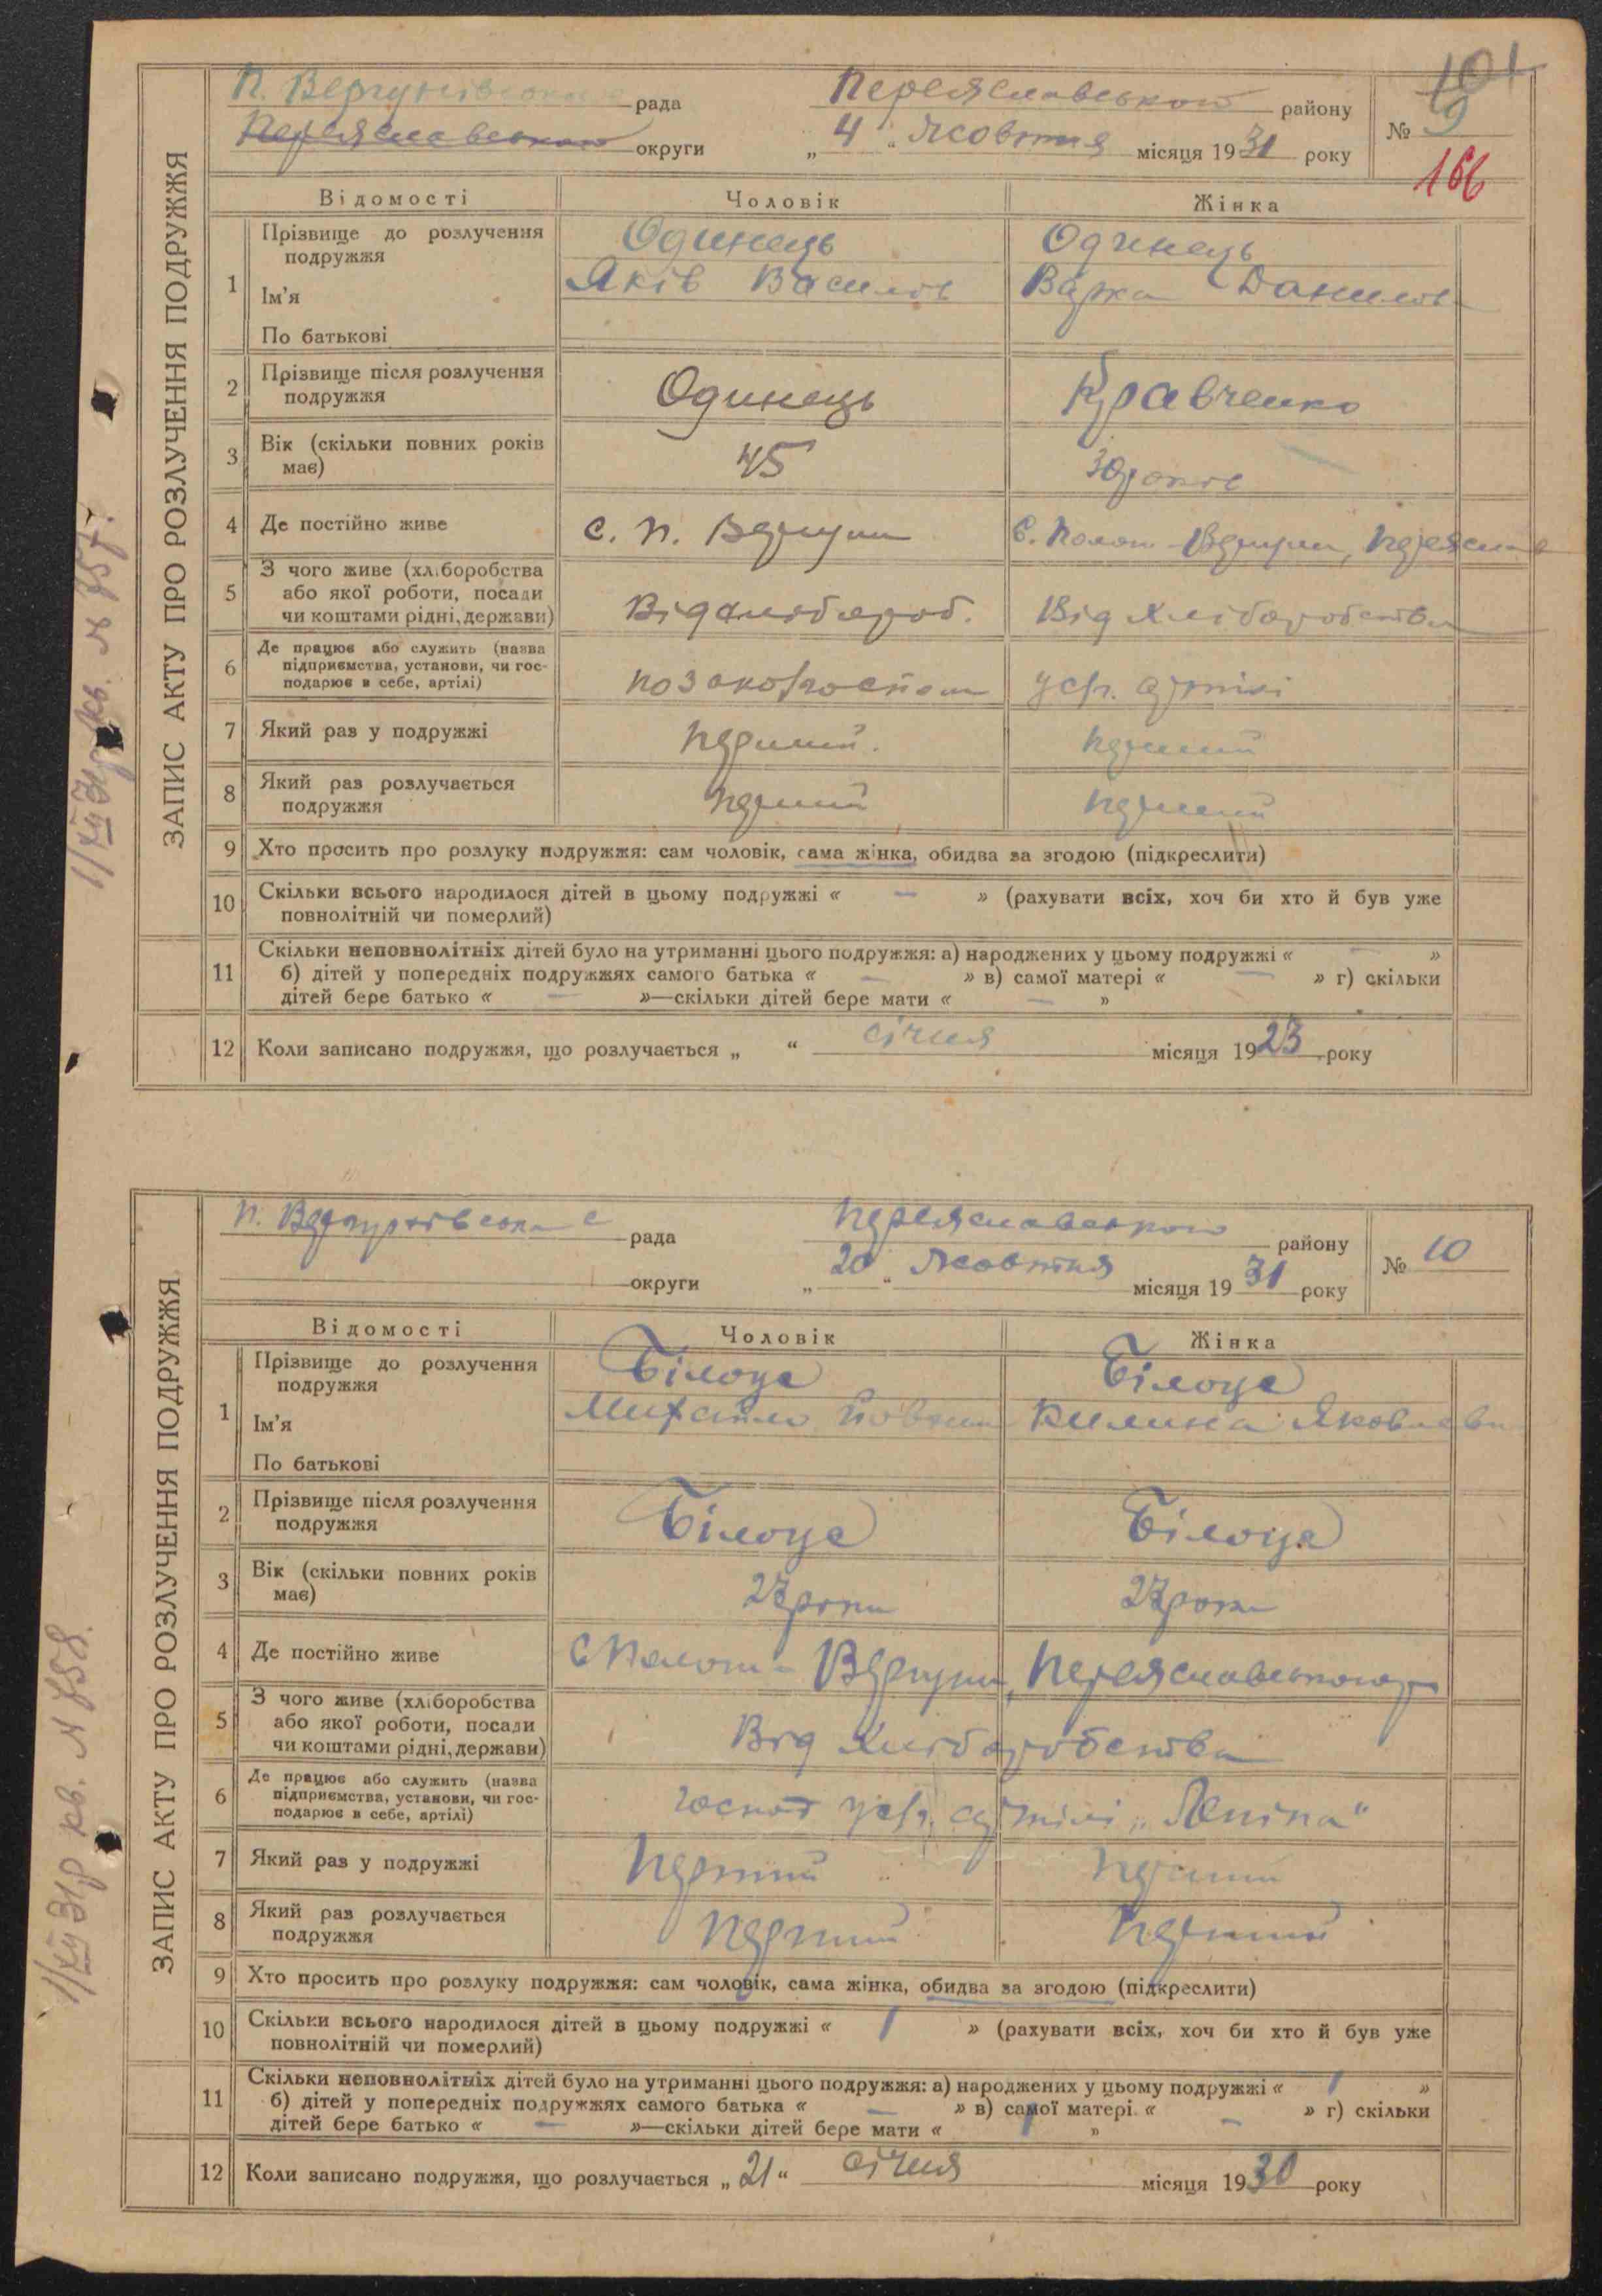 101
П. Вергунівська рада Переяславського району № 9
Переяславського округи „ 4 “ Жовтня місяця 1931 року
166
ЗАПИС АКТУ ПРО РОЗЛУЧЕННЯ ПОДРУЖЖЯ
Відомості Чоловік Жінка
1 Прізвище до розлучення подружжя Одинець Одинець
Ім’я Яків Василов Варка Данилов
По батькові
2 Прізвище після розлучення подружжя Одинець Кравченко
3 Вік (скільки повних років має) 45 30 років
4 Де постійно живе с. П. Вергуни С. Полош Вергуни,
5 З чого живе (хліборобства або якої роботи, посади чи коштами рідні, держави) Від хлібороб. Від хліборобства
6 Де працює або служить (назва підприємства, установи, чи господарює в себе, артілі) уст. артілі
7 Який раз у подружжі перший. перший
8 Який раз розлучається подружжя перший перший
9 Хто просить про розлуку подружжя: сам чоловік, сама жінка, обидва за згодою (підкреслити)
10 Скільки всього народилося дітей в цьому подружжі « — » (рахувати всіх, хоч би хто й був уже
повнолітній чи померлий)
11 Скільки неповнолітніх дітей було на утриманні цього подружжя: а) народжених у цьому подружжі « — »
б) дітей у попередніх подружжях самого батька « — » в) самої матері « — » г) скільки
дітей бере батько « — »—скільки дітей бере мати « — »
12 Коли записано подружжя, що розлучається „ “ січня місяця 1923 року
П. Вергунівська рада Переяславського району № 10
округи „ 20 “ Жовтня місяця 1931 року
ЗАПИС АКТУ ПРО РОЗЛУЧЕННЯ ПОДРУЖЖЯ
1/XII 31р кв. № 858.
Відомості Чоловік Жінка
1 Прізвище до розлучення подружжя Білоца Білоца
Ім’я Михайло Килина Яковлевн
По батькові
2 Прізвище після розлучення подружжя Білоца Білоца
3 Вік (скільки повних років має) роки роки
4 Де постійно живе С Полош - Вергуни, Переяславського р
5 З чого живе (хліборобства або якої роботи, посади чи коштами рідні, держави) Від хліборобства
6 Де працює або служить (назва підприємства, установи, чи господарює в себе, артілі) уст. артілі „Леніна“
7 Який раз у подружжі Перший Перший
8 Який раз розлучається подружжя Перший Перший
9 Хто просить про розлуку подружжя: сам чоловік, сама жінка, обидва за згодою (підкреслити)
10 Скільки всього народилося дітей в цьому подружжі « 1 » (рахувати всіх, хоч би хто й був уже
повнолітній чи померлий)
11 Скільки неповнолітніх дітей було на утриманні цього подружжя: а) народжених у цьому подружжі « 1 »
б) дітей у попередніх подружжях самого батька « — » в) самої матері « — » г) скільки
дітей бере батько « — »—скільки дітей бере мати « 1 »
12 Коли записано подружжя, що розлучається „ 21 “ січня місяця 1930 року